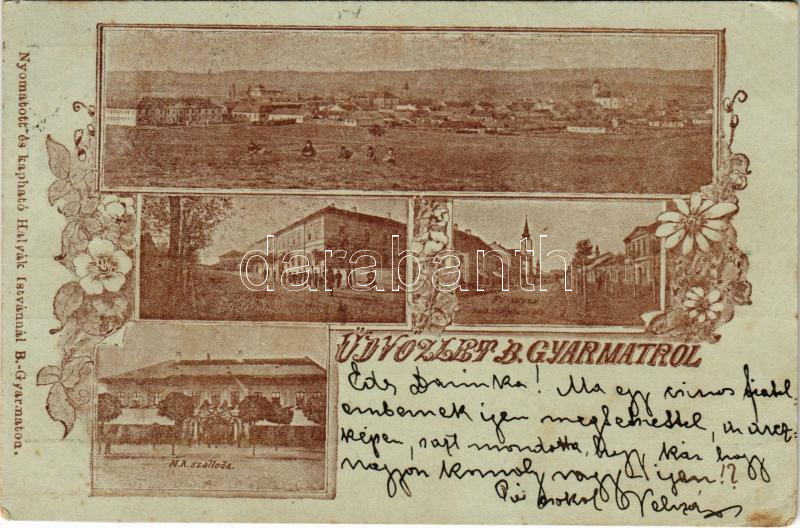 Nyomatott és kapható Halyák Istvánnál B.-Gyarmaton.
darabanth
Fő utcza
M.K. szálloda.
ÜDVÖZLET B. GYARMATRÓL
Édes Darinka! Ma egy csinos fiatal
embernek igen megtetszettél, az arcz-
képen, s azt mondotta, hogy kár hogy
nagyon komoly vagy igen!?
Pá csokol